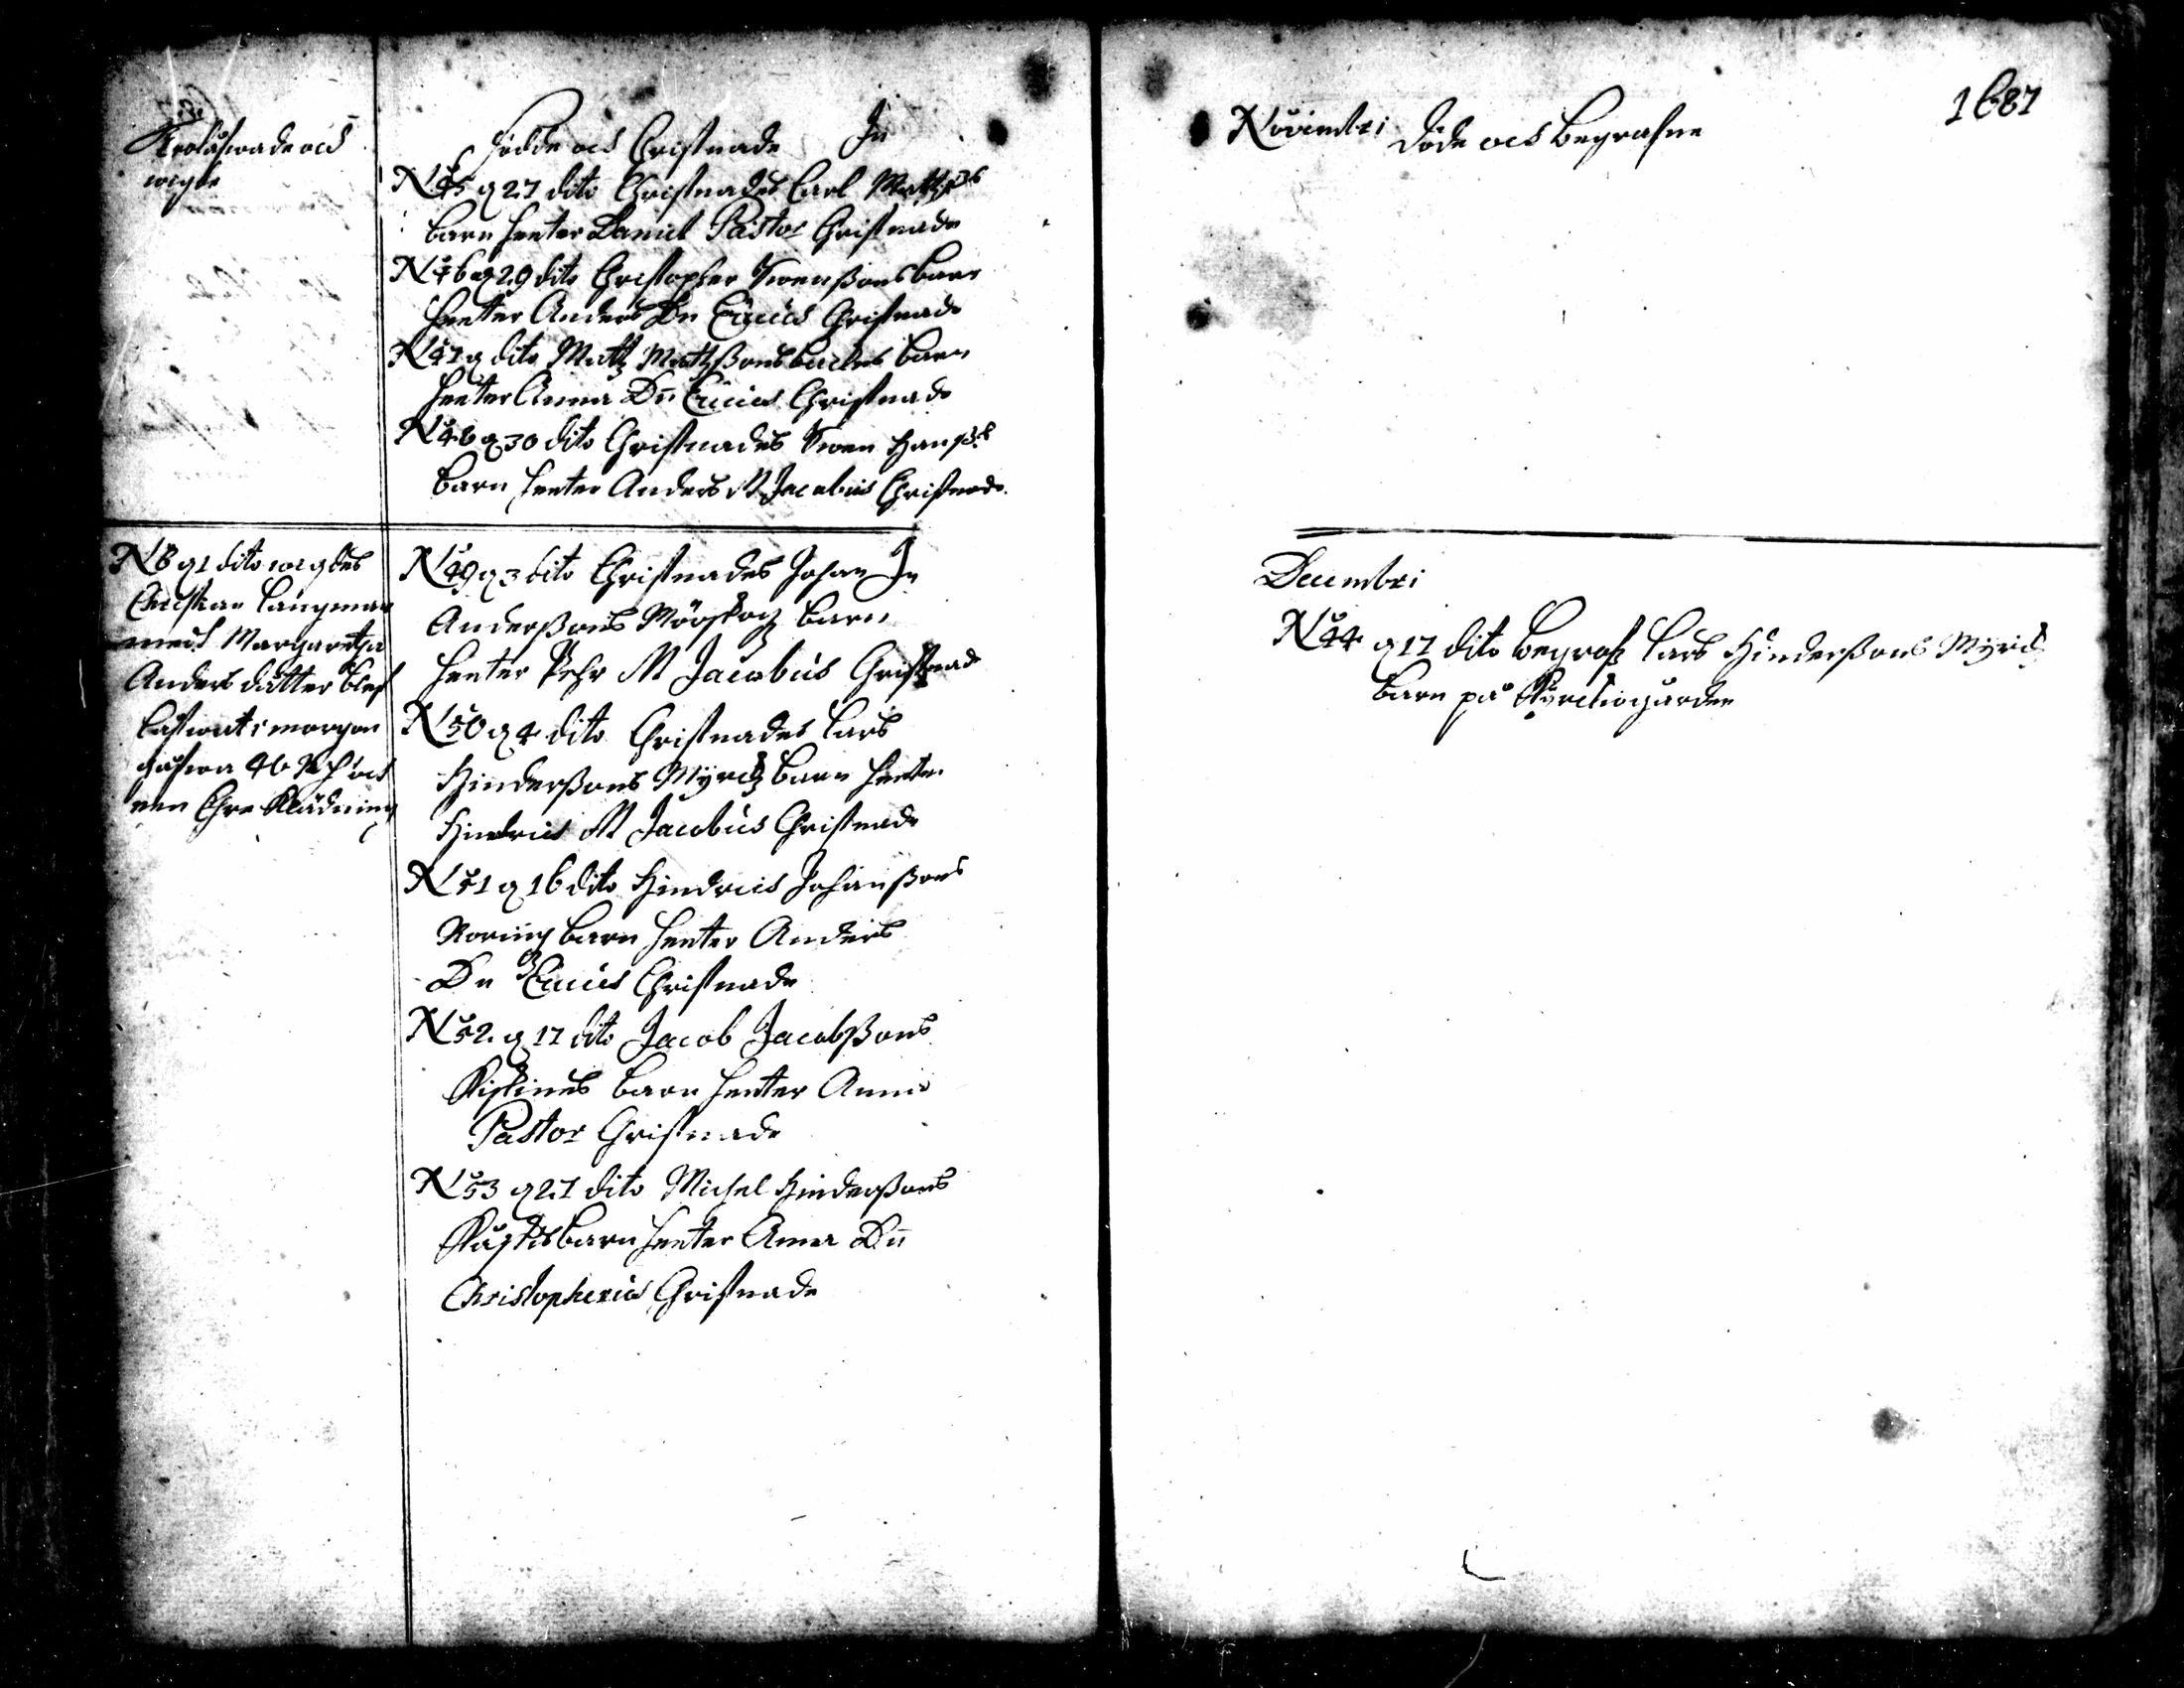 Trolåfwade och
wigde
Födde och Christnade In
N 45 d 27 dito Christnades Carl Mattß
barn heeter Daniel Pastor Christnade
N 46 d 29 dito Christopher Swenßons barn
heeter Anders Dn Ericus Christnade
N 47 d dito Matz Matzßons barn
heeter Anna Dn Ericus Christnade
N 48 d 30 dito Christnades Swen Hanß
barn heeter Anders M Jacobus Christnade
N 8 d 1 dito wigdes
Christian Langman
medh Margaretha
Anders dåtter blef
låfwat i morgon
gåfwa 40 och
een Ehre Klädning
N 49 d 3 dito Christnades Johan In
Anderßons Mörskog barn
heeter Pehr M Jacobus Christnade
N 50 d 4 dito Christnades Lars
Hinderßons barn heeter
Hindrich M Jacobus Christnade
N 51 d 16 dito Hindrich Johanßons
Noring barn heeter Anders
Dn Ericus Christnade
N 52 d 17 dito Jacob Jacobßons
barn heeter Anna
Pastor Christnade
N 53 d 27 dito Michel Hinderßons
barn heeter Anna Dn
Christopherus Christnade
Novembri Döde och Begrafne
1687
Decembri
N 44 d 17 dito begrofz Lars Hinderßons
barn på Kyrckiogården